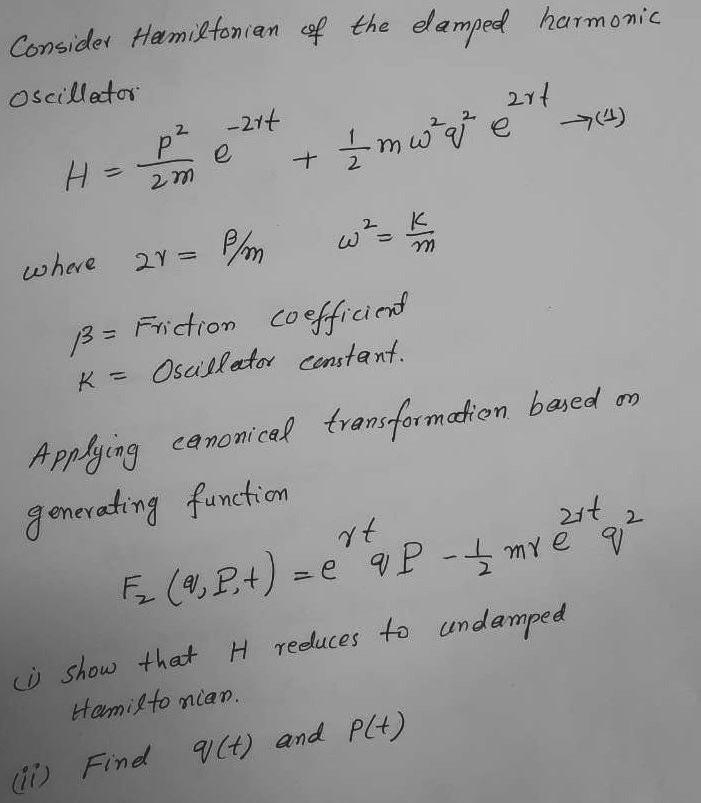 Consider Hamiltonian of the damped harmonic
Oscillator
H = p²/2m e^{-2γt} + 1/2 mω²q² e^{2γt} → (1)
where 2γ = β/m ω² = K/m
β = Friction coefficient
K = Oscillator constant.
Applying canonical transformation based on
generating function
F₂ (q, P, t) = e^{γt} q P - 1/2 mγ e^{2γt} q²
(i) show that H reduces to undamped
Hamiltonian.
(ii) Find q(t) and p(t)